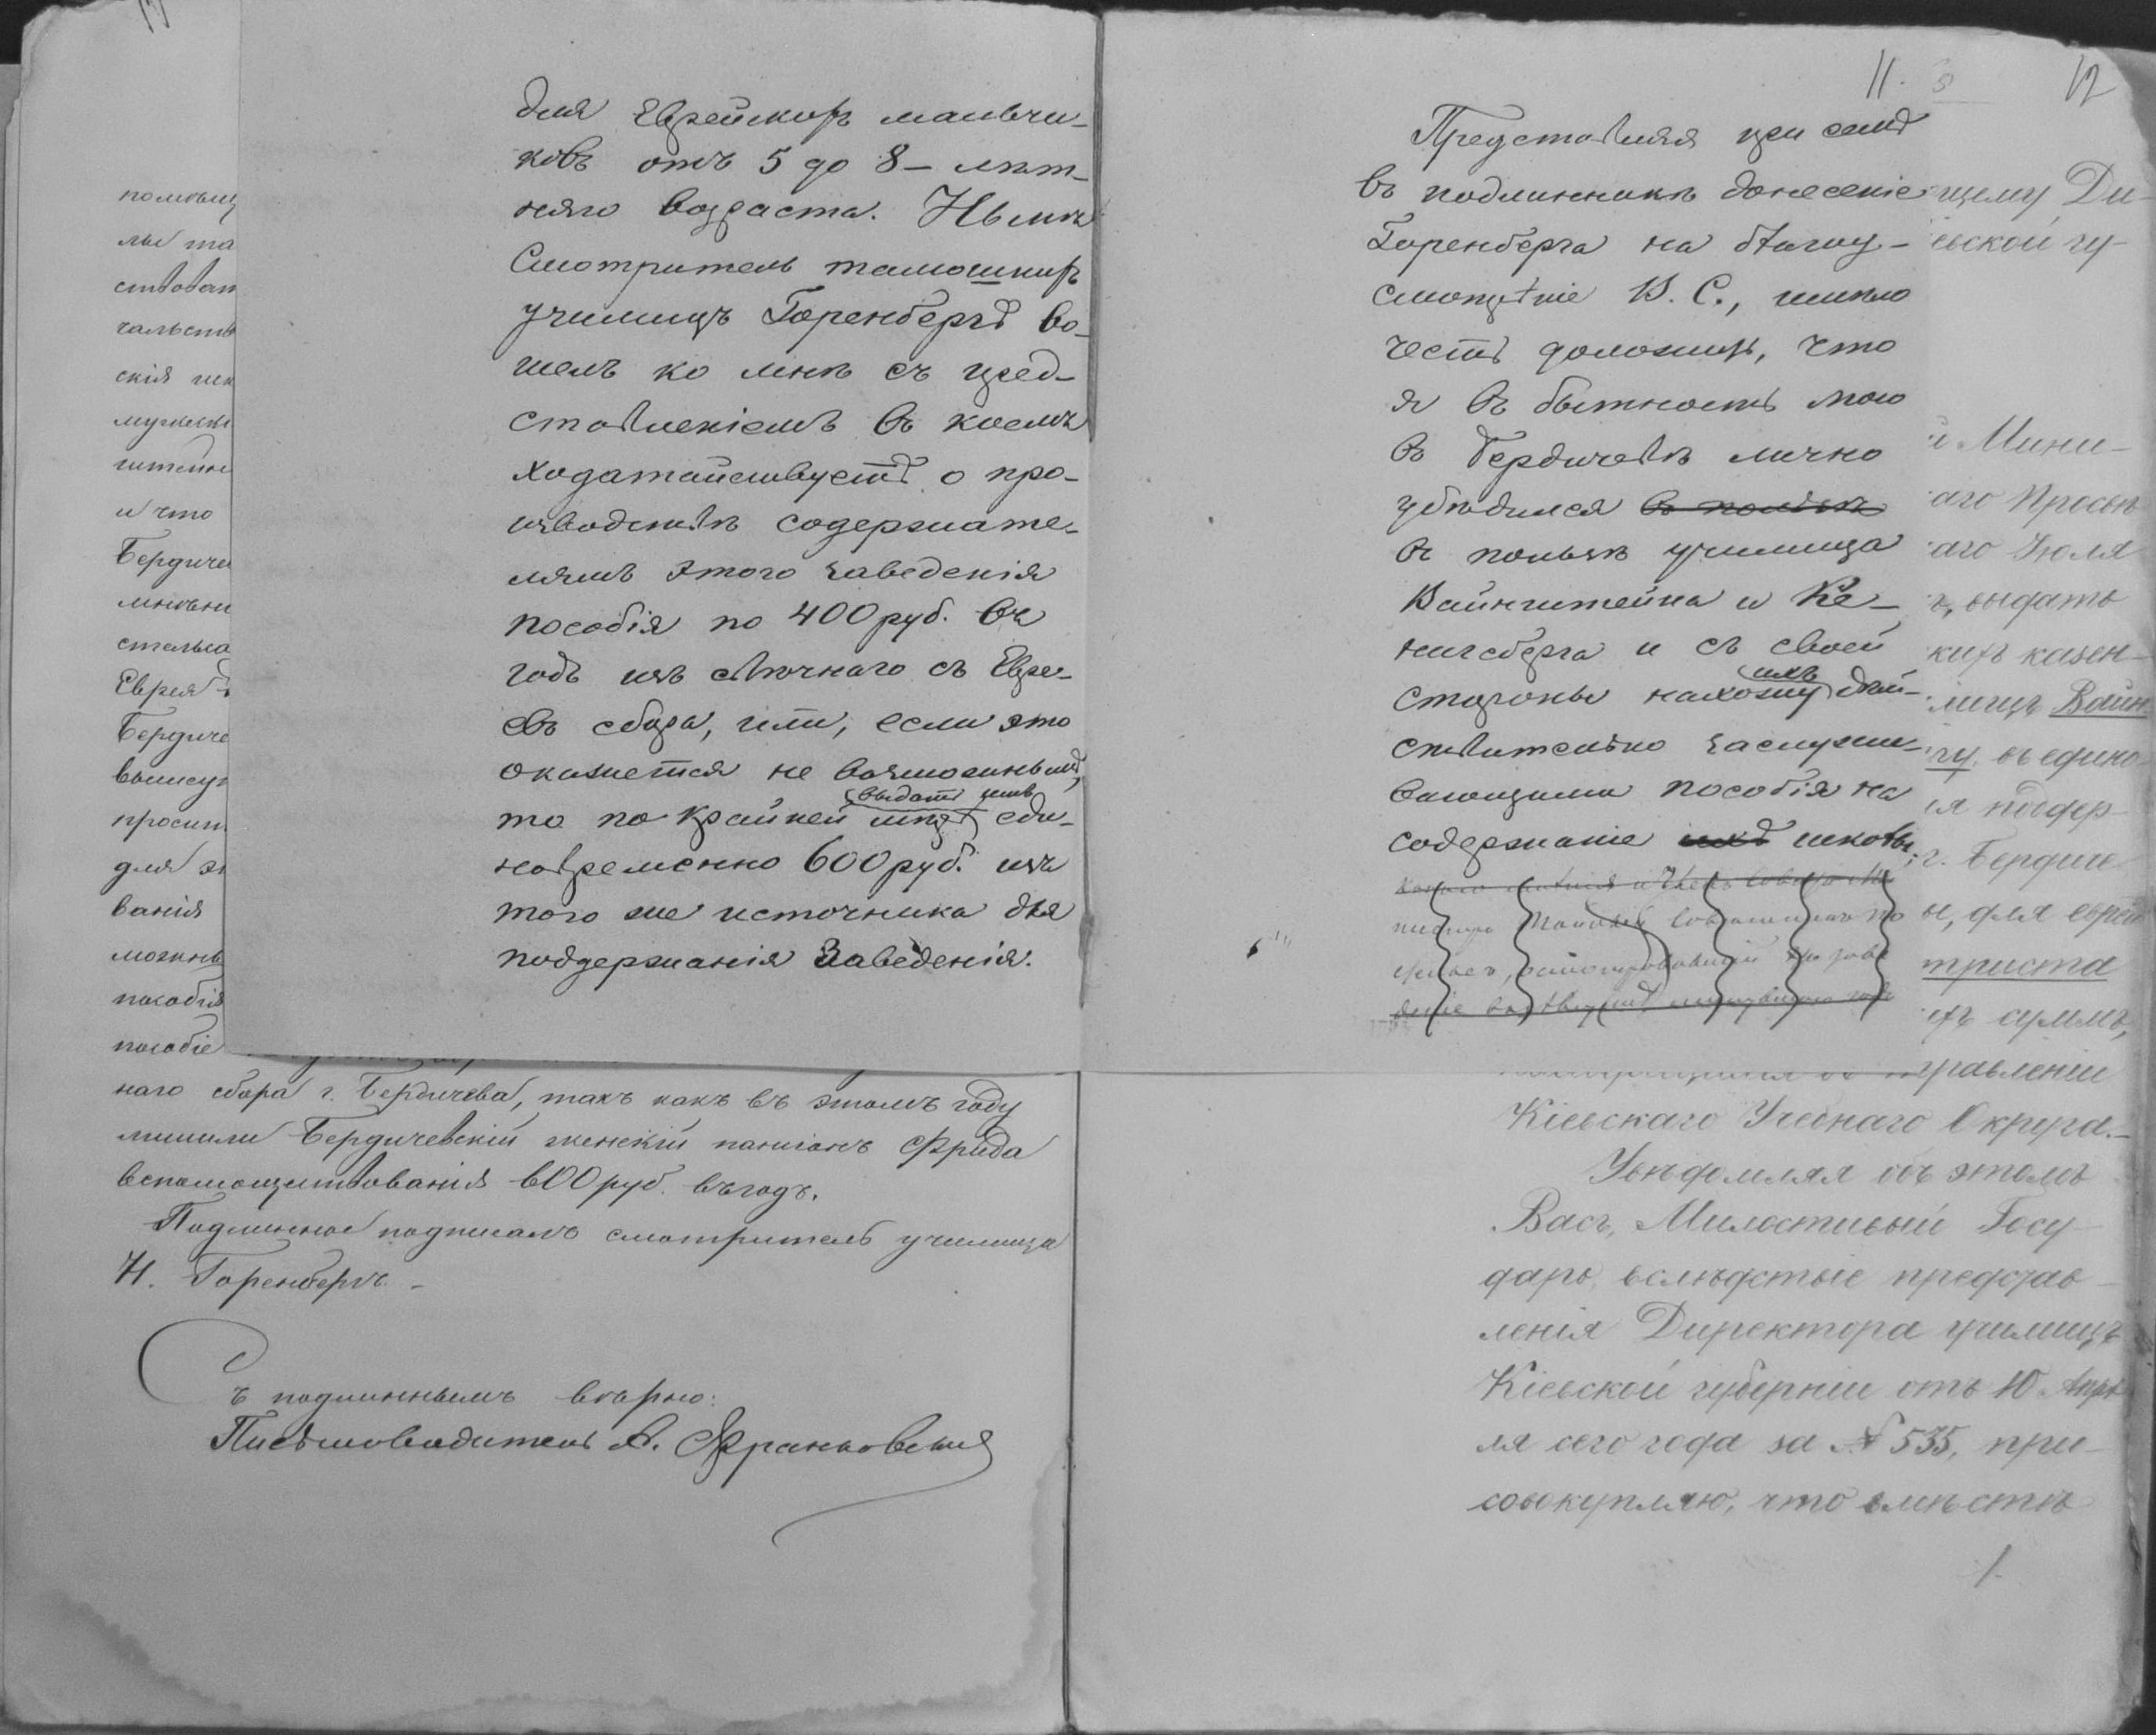 для Еврейскихъ мальчи-
ковъ отъ 5 до 8-лѣт-
няго возраста. Нынѣ
Смотритель тамошнихъ
училищъ Горенбергъ во-
шелъ ко мнѣ съ пред-
ставленіемъ въ коемъ
ходатайствуетъ о про-
изводствѣ содержате-
лямъ этого заведенія
пособія по 400 руб. въ
годъ изъ свѣчнаго съ Евре-
евъ сбора, или, если это
окажется не возможнымъ,
выдать имъ
то по крайней мѣрѣ еди-
новременно 600 руб. изъ
того же источника для
поддержанія Заведенія.
помѣщ
лы та
ствован
чальств
скія шк
мужеск
и что
Бердиче
мнѣні
Еврея
Бердиче
просит
для э
ванія
можны
пособія
пособіе
наго сбора г. Бердичева, такъ какъ въ этомъ году
лишили Бердичевскій женскій пансіонъ Фрида
вспомоществованія 600 руб. въ годъ.
Подлинное подписалъ смотритель училища
Н. Горенбергъ. –
Съ подлиннымъ вѣрно:
Письмоводитель А. Франковскій
11. 12
Представляя при семъ
въ подлинникѣ донесеніе
Горенберга на благоу-
смотрѣніе В. С., имѣю
честь доложить, что
я въ бытность мою
въ Бердичевѣ лично
убѣдился въ пользѣ
въ пользѣ училища
Вайнштейна и Ке-
нигсберга и съ своей
ихъ
стороны нахожу дѣй-
ствительно заслужи-
вающими пособія на
содержаніе ихъ школы.
щему Ди-
евской гу-
й Мини-
аго Просвѣ
аго Іюля
ъ, выдать
кихъ казен-
лищъ Вайн
гу, въ едино-
ія поддер-
г. Бердиче
ы, для еврей
триста
ихъ суммъ,
правленіи
Кіевскаго Учебнаго Округа.–
Увѣдомляя объ этомъ
Васъ, Милостивый Госу-
дарь, вслѣдствіе представ-
ленія Директора училищъ
Кіевской губерніи отъ 10 Апрѣ
ля сего года за № 535, при-
совокупляю, что вмѣстѣ